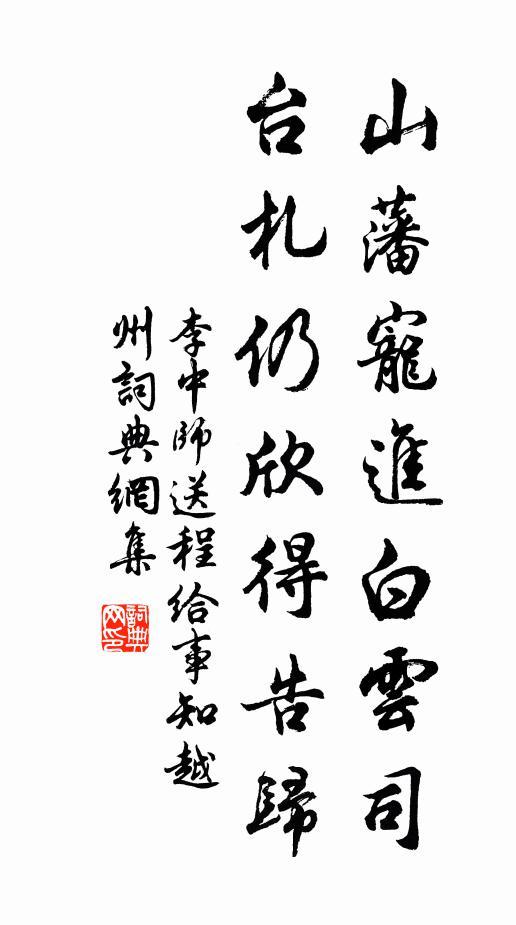 山藩寵進白雲司
台札仍欣得告歸
李中師送程給事知越
州詞典網集
詞典
网印